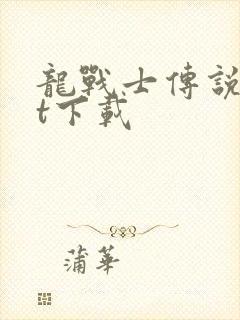 龍戰士傳説
t下載
蒲華